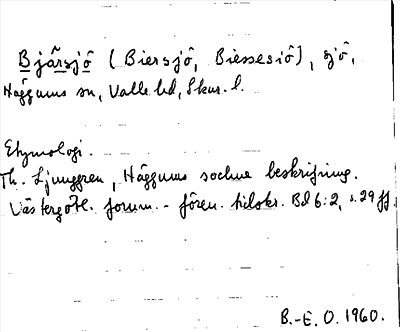 Bjärsjö (Biersjö, Biessesiö), sjö,
Häggums sn, Valle hd, Skar. l.
Etymologi.
Th. Ljunggren, Häggums sockne beskrifning.
Västergötl. fornm.-fören. tidskr. Bd 6:2, s. 29 ff.
B.-E. O. 1960.